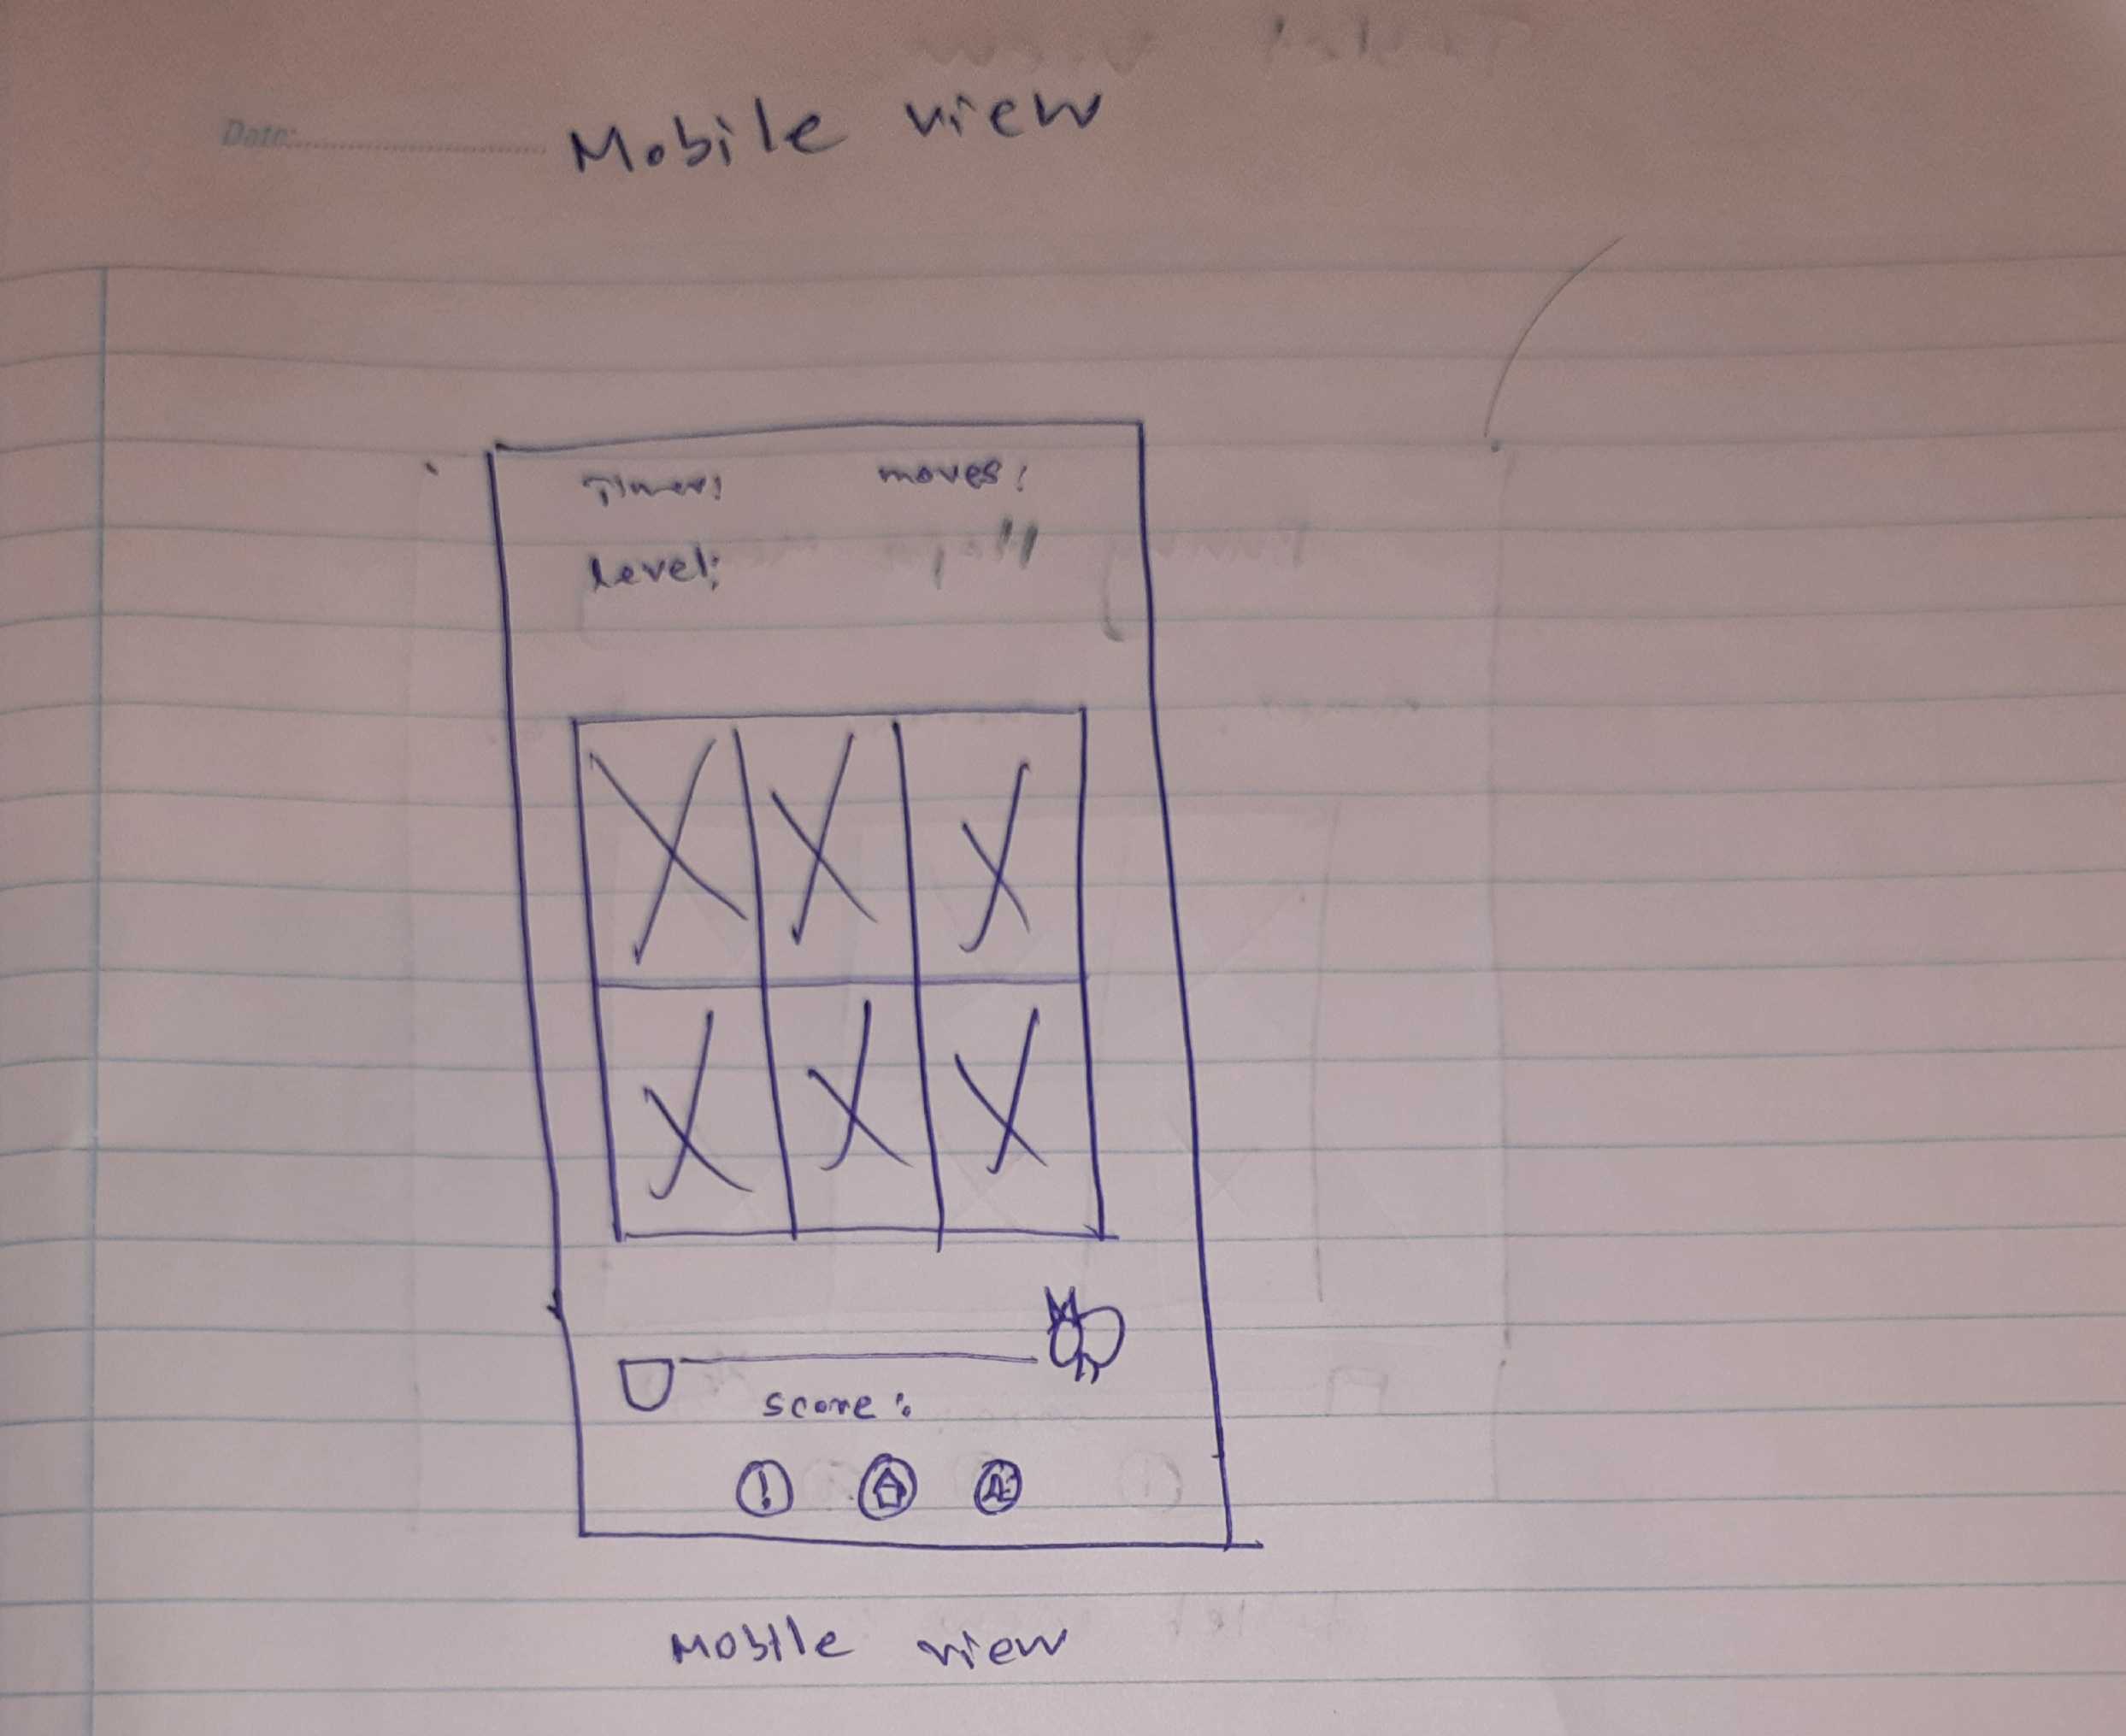 Mobile view
Date:
Timer: moves:
Level:
score:
!
Mobile view